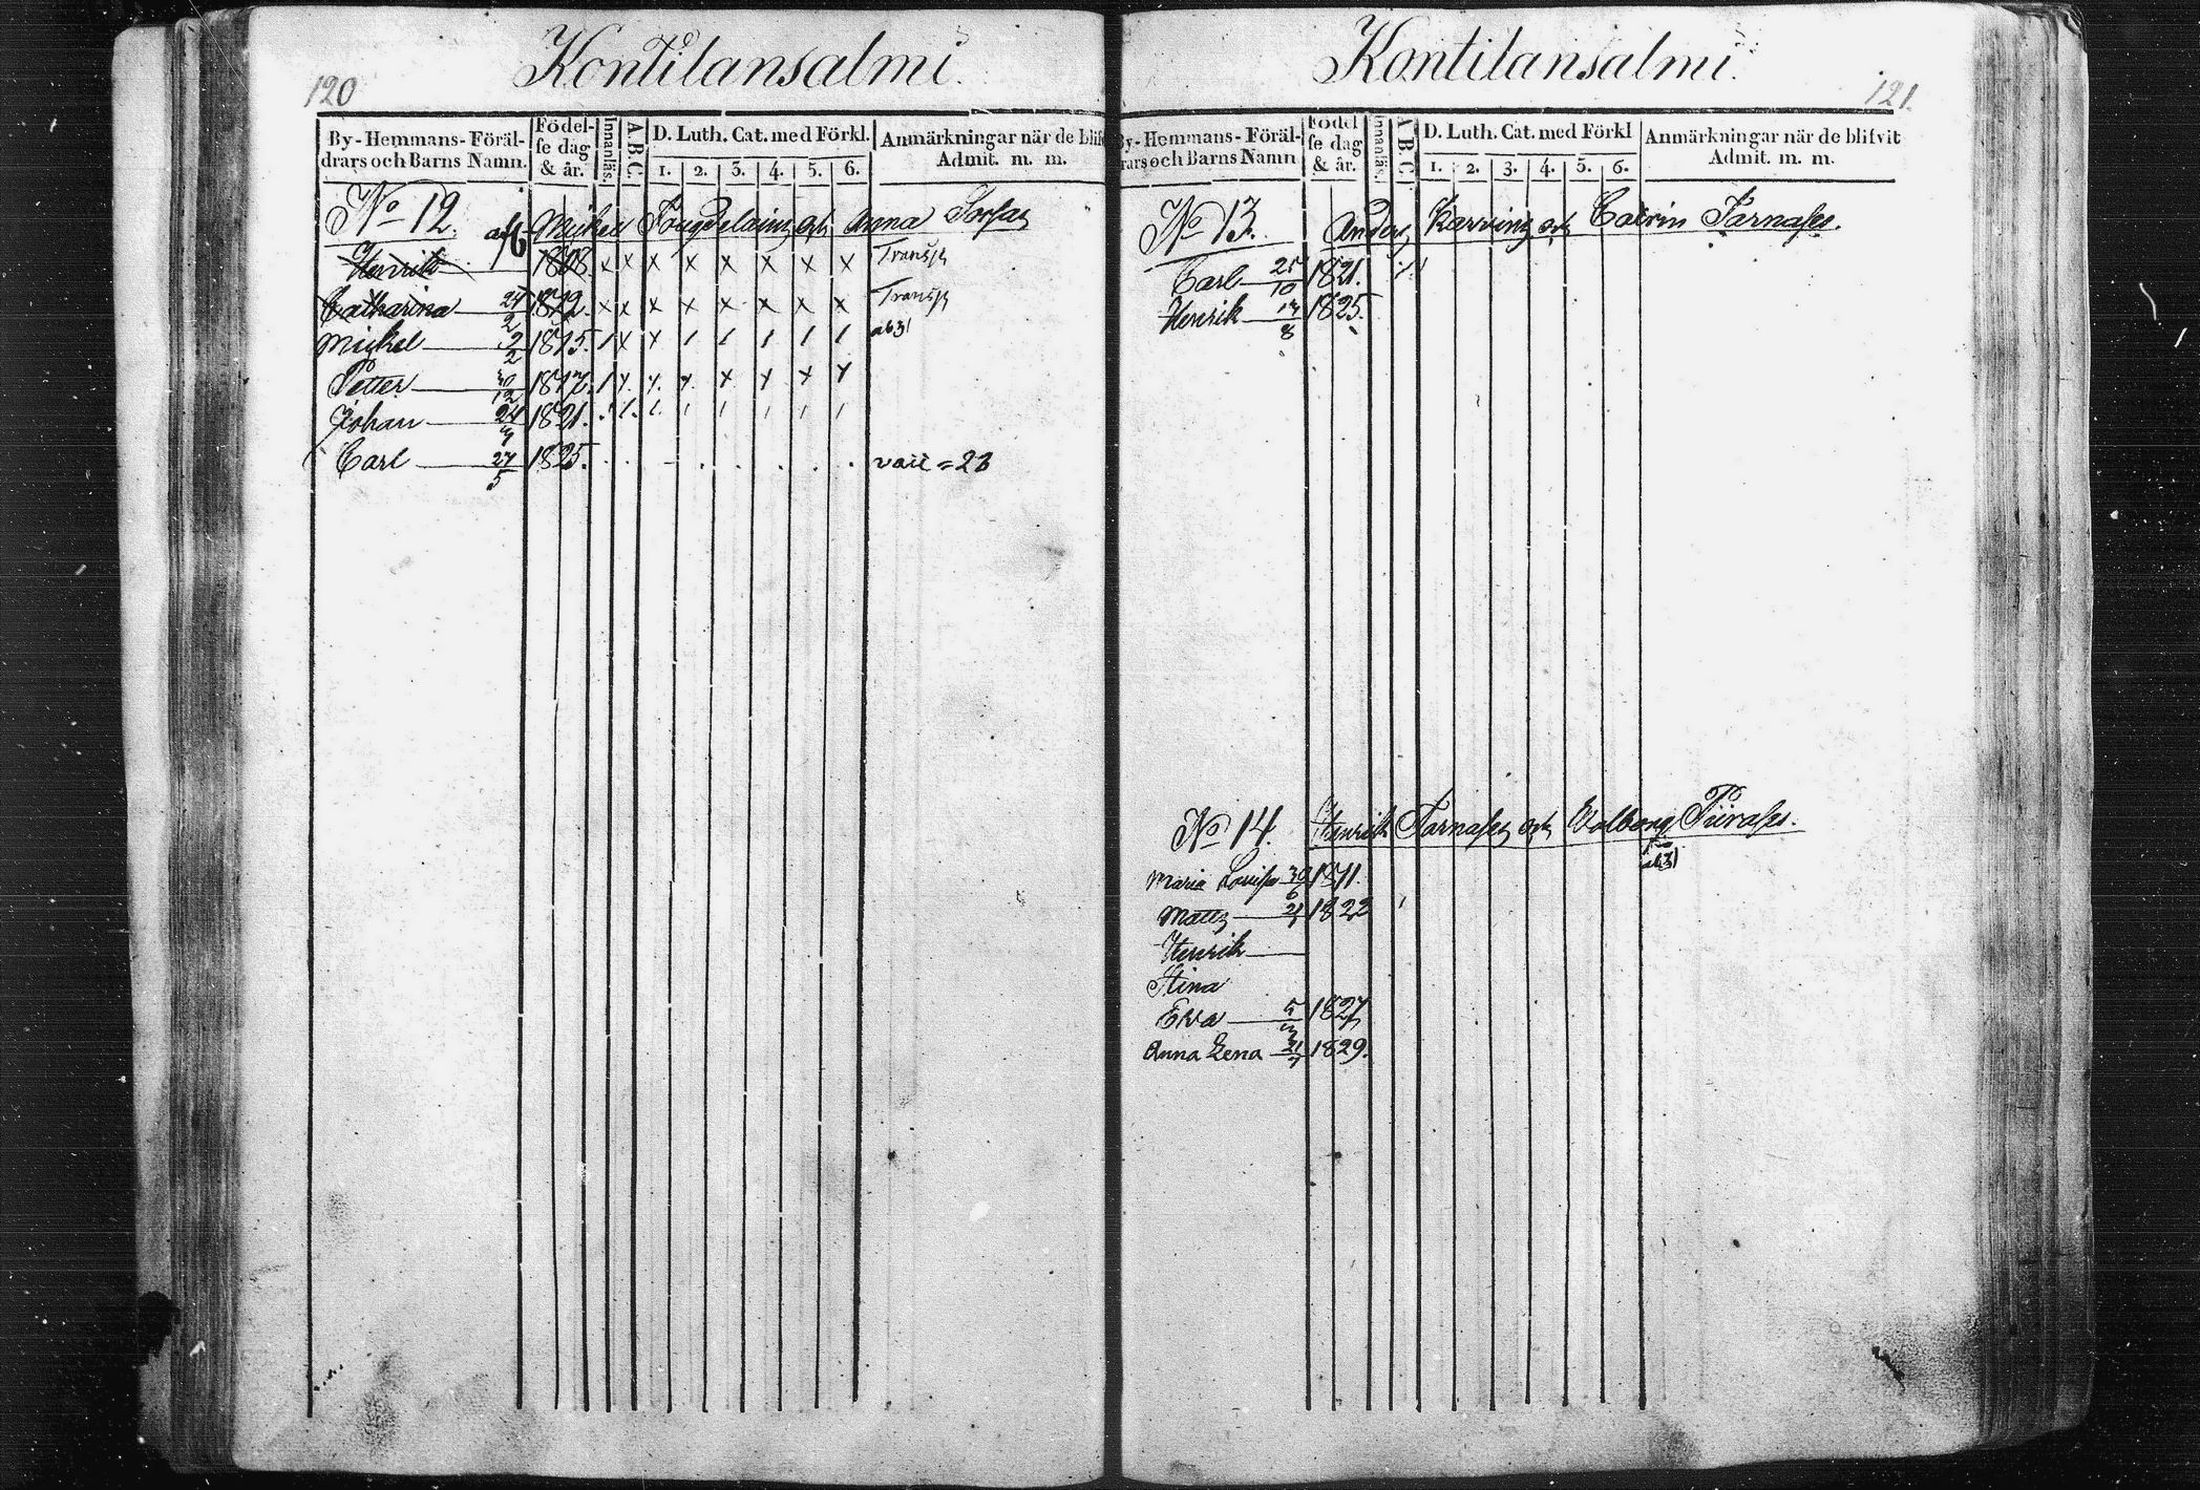 120
Kontilansalmi.
By-Hemmans-Föräl-
drars och Barns Namn.
Födel-
se dag
& år.
Innanläs.
A B C.
D. Luth. Cat. med Förkl.
1. 2. 3. 4. 5. 6.
Anmärkningar när de blif
Admit. m. m.
No 12. Mickel och Anna
Henrik 1808. x x x x x x x x Transp
Catharina 24/2 1812. x x x x x x x x Transp
Mickel 2/2 1815. / x x / / / / / ab31
Petter 30/12 1817. / x x x x x x x
Johan 24/3 1821.
Carl 27/5 1825.
Kontilansalmi.
121.
By-Hemmans-Föräl-
rars och Barns Namn
Födel
se dag
& år.
Innanläs.
A B C.
D. Luth. Cat. med Förkl
1. 2. 3. 4. 5. 6.
Anmärkningar när de blifvit
Admit. m. m.
No 13. Anders Karvinen och Catrin Tarnases.
Carl 25/10 1821.
Henrik 13/8 1825.
No 14. Henrik Tarnases och Valborg
ab31
Maria Lovisa 30/6 1811.
Matts 1822
Henrik
Stina
Eva 5/3 1827
Anna Lena 21/7 1829.